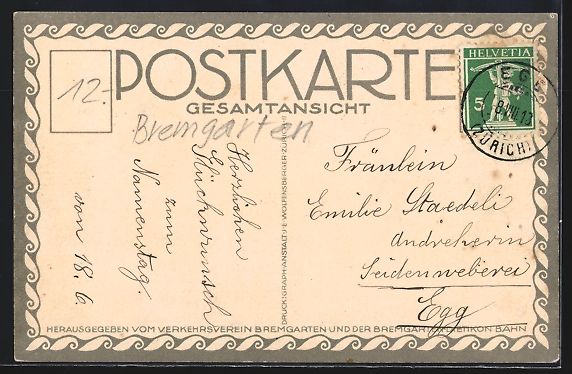 12.-
POSTKARTE
GESAMTANSICHT
Bremgarten
HELVETIA
5
EGG
(ZÜRICH)
Herzlichen
Glückwunsch
zum
Namenstag.
von 18. 6.
DRUCK: GRAPH. ANSTALT J.E. WOLFENSBERGER ZÜRICH
Fräulein
Emilie Staedeli
Andreherin
Seidenweberei
Egg
HERAUSGEGEBEN VOM VERKEHRSVEREIN BREMGARTEN UND DER BREMGARTEN-DIETIKON BAHN